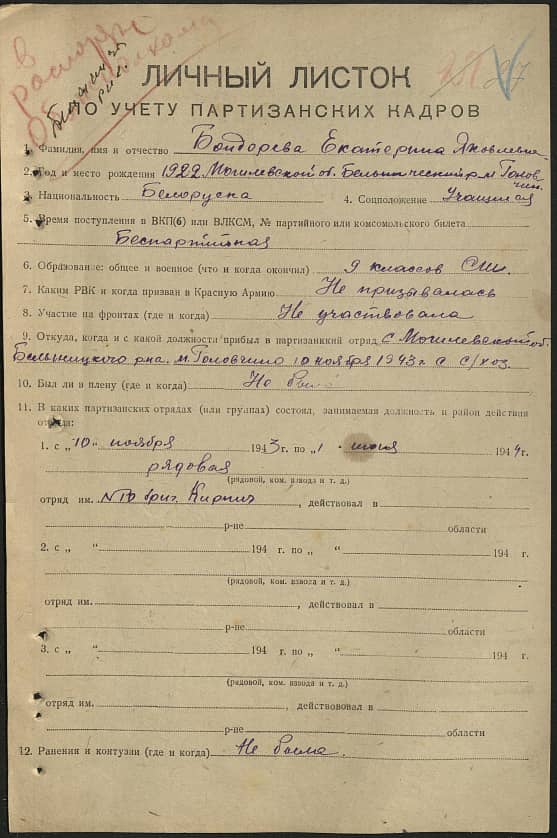 в
распоряж
Обкома
27
ЛИЧНЫЙ ЛИСТОК
ПО УЧЕТУ ПАРТИЗАНСКИХ КАДРОВ
1. Фамилия, имя и отчество Бондарева Екатерина Яковлевна
2. Год и место рождения 1922. Могилевской об. Белыническ рн м Голов
чин.
3. Национальность Белоруска 4. Соцположение Учащияся
5. Время поступления в ВКП(б) или ВЛКСМ, № партийного или комсомольского билета
Беспартийная
6. Образование: общее и военное (что и когда окончил) 9 классов СШ.
7. Каким РВК и когда призван в Красную Армию Не призывалась
8. Участие на фронтах (где и когда) Не участвовала
9. Откуда, когда и с какой должности прибыл в партизанкий отряд с Могилевской об.
Белыницкого рна. м. Головчино 10 ноября 1943 г. с с/хоз.
10. Был ли в плену (где и когда) Не была
11. В каких партизанских отрядах (или группах) состоял, занимаемая должность и район действия
отряда:
1. с „10" ноября 1943 г. по „1 июля 1944 г.
рядовая
(рядовой, ком. взвода и т. д.)
отряд им. №10 бриг. Кирпич, действовал в
р-не области
2. с „ " 194 г. по „ " 194 г.
(рядовой, ком. взвода и т. д.)
отряд им. , действовал в
р-не области
3. с „ " 194 г. по „ " 194 г.
(рядовой, ком. взвода и т. д.)
отряд им. , действововал в
р-не области
12. Ранения и контузии (где и когда) Не была.